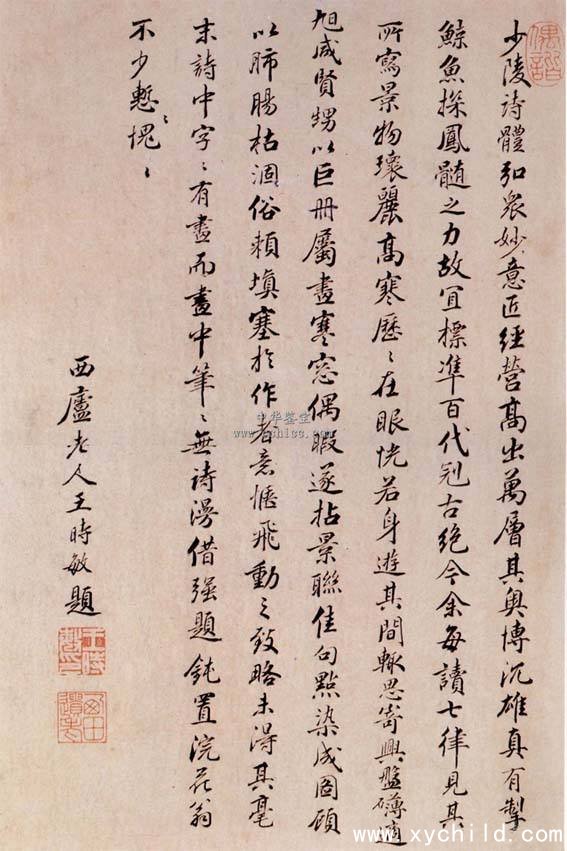 偶諧
少陵詩體弘衆妙意匠經營高出萬層其奧博沉雄真有掣
鯨魚探鳳髓之力故宜標準百代冠古絕今余每讀七律見其
所寫景物瓌麗高寒歷〻在眼恍若身遊其間輒思寄興盤礴適
旭咸賢甥以巨冊屬畫寒窓偶暇遂拈景聯佳句點染成圖顧
以肺腸枯涸俗賴填塞於作者意愜飛動之致略未得其毫
末詩中字〻有畫而畫中筆〻無詩漫借強題鈍置浣花翁
不少慙〻愧〻
西廬老人王時敏題
中华鉴宝
www.xychild.com